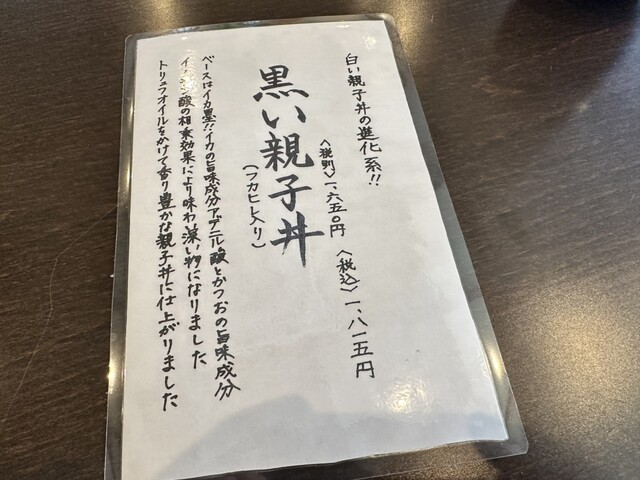 白い親子丼の進化系!!
〈税別〉一、六五〇円 〈税込〉一、八一五円
黒い親子丼
(フカヒレ入り)
ベースはイカ墨!!イカの旨味成分アデニル酸とかつおの旨味成分
イノシン酸の相乗効果により味わい深い物になりました
トリュフオイルをかけて香り豊かな親子丼に仕上がりました